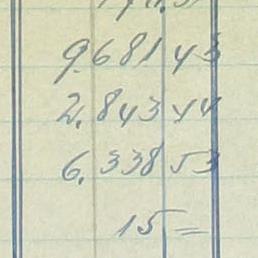 9.681 43
2.843 44
6.338 53
15 =